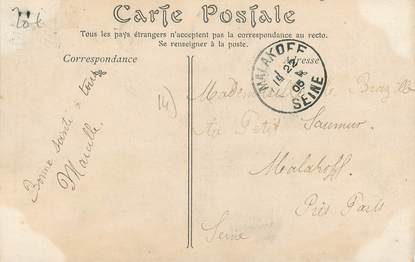 20 €
Carte Postale
Tous les pays étrangers n'acceptent pas la correspondance au recto.
Se renseigner à la poste.
Correspondance
Adresse
MALAKOFF
22
05
SEINE
14)
Mademoiselle Brazille
Au Petit Saumur
Malakoff
Près Paris
Seine
Bonne santé à tous
Marcelle